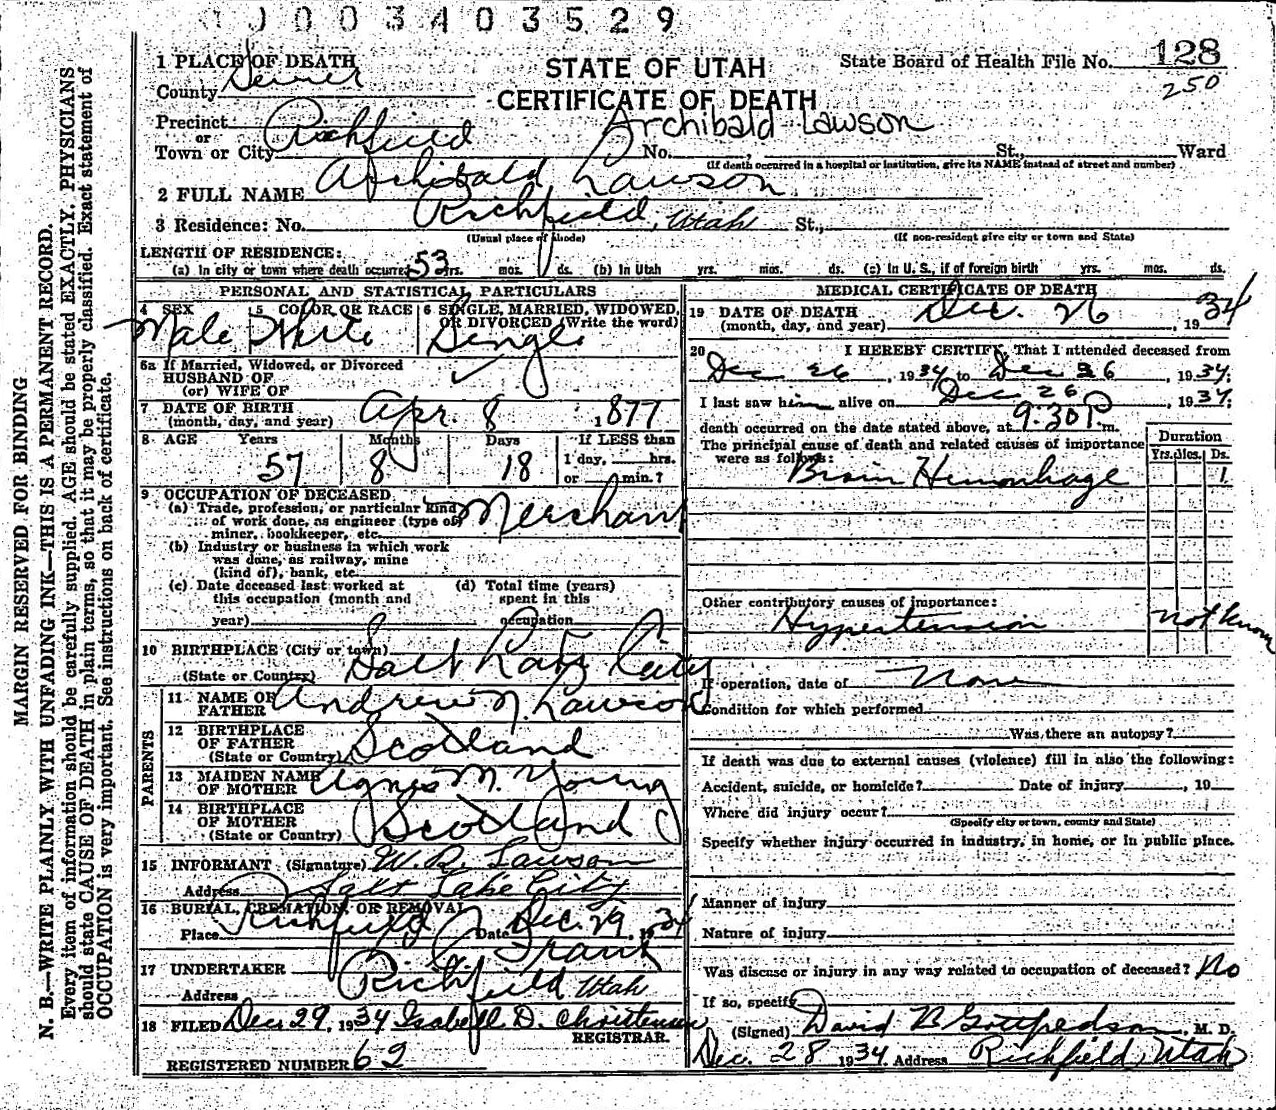 1 0 0 3 4 0 3 5 2 9
1 PLACE OF DEATH
County Sevier
STATE OF UTAH
CERTIFICATE OF DEATH
State Board of Health File No. 128
250
Precinct
or
Town or City Richfield
Archibald Lawson
No. , St., Ward
(If death occurred in a hospital or institution, give its NAME instead of street and number)
2 FULL NAME Archibald Lawson
3 Residence: No. Richfield, Utah St.,
(Usual place of abode) (If non-resident give city or town and State)
LENGTH OF RESIDENCE:
(a) In city or town where death occurred 53 yrs. mos. ds. (b) In Utah yrs. mos. ds. (c) In U. S., if of foreign birth yrs. mos. ds.
PERSONAL AND STATISTICAL PARTICULARS
4 SEX 5 COLOR OR RACE 6 SINGLE, MARRIED, WIDOWED, OR DIVORCED (Write the word)
Male White Single
6a If Married, Widowed, or Divorced
HUSBAND OF
(or) WIFE OF
7 DATE OF BIRTH
(month, day, and year) Apr. 8, 1877
8 AGE Years Months Days If LESS than
57 8 18 1 day, hrs.
or min.?
9 OCCUPATION OF DECEASED
(a) Trade, profession, or particular kind
of work done, as engineer (type of) Merchant
miner, bookkeeper, etc.
(b) Industry or business in which work
was done, as railway, mine
(kind of), bank, etc.
(c) Date deceased last worked at (d) Total time (years)
this occupation (month and spent in this
year) occupation
10 BIRTHPLACE (City or town)
(State or Country) Salt Lake City
PARENTS
11 NAME OF
FATHER Andrew N. Lawson
12 BIRTHPLACE
OF FATHER Scotland
(State or Country)
13 MAIDEN NAME
OF MOTHER Agnes M. Young
14 BIRTHPLACE
OF MOTHER Scotland
(State or Country)
15 INFORMANT (Signature) W. R. Lawson
Address Salt Lake City
16 BURIAL, CREMATION, OR REMOVAL
Place Richfield Date Dec. 29, 1934
17 UNDERTAKER
Address Richfield Utah
18 FILED Dec 29, 1934 Isabell D. Christensen
REGISTRAR.
REGISTERED NUMBER 62
MEDICAL CERTIFICATE OF DEATH
19 DATE OF DEATH
(month, day, and year) Dec. 26, 1934
20 I HEREBY CERTIFY, That I attended deceased from
Dec 26, 1934 to Dec 26, 1934;
I last saw him alive on Dec 26, 1934;
death occurred on the date stated above, at 9:30P m.
The principal cause of death and related causes of importance
were as follows:
Duration
Yrs. Mos. Ds.
Brain Hemorrhage 1
Other contributory causes of importance:
Hypertension not know
If operation, date of None
Condition for which performed
Was there an autopsy?
If death was due to external causes (violence) fill in also the following:
Accident, suicide, or homicide? Date of injury , 19
Where did injury occur?
(Specify city or town, county and State)
Specify whether injury occurred in industry, in home, or in public place.
Manner of injury
Nature of injury
Was disease or injury in any way related to occupation of deceased? No
If so, specify
(Signed) David N Gottfredson, M. D.
Dec. 28 1934. Address Richfield, Utah
MARGIN RESERVED FOR BINDING
N. B.—WRITE PLAINLY WITH UNFADING INK—THIS IS A PERMANENT RECORD.
Every item of information should be carefully supplied. AGE should be stated EXACTLY. PHYSICIANS
should state CAUSE OF DEATH in plain terms, so that it may be properly classified. Exact statement of
OCCUPATION is very important. See instructions on back of certificate.